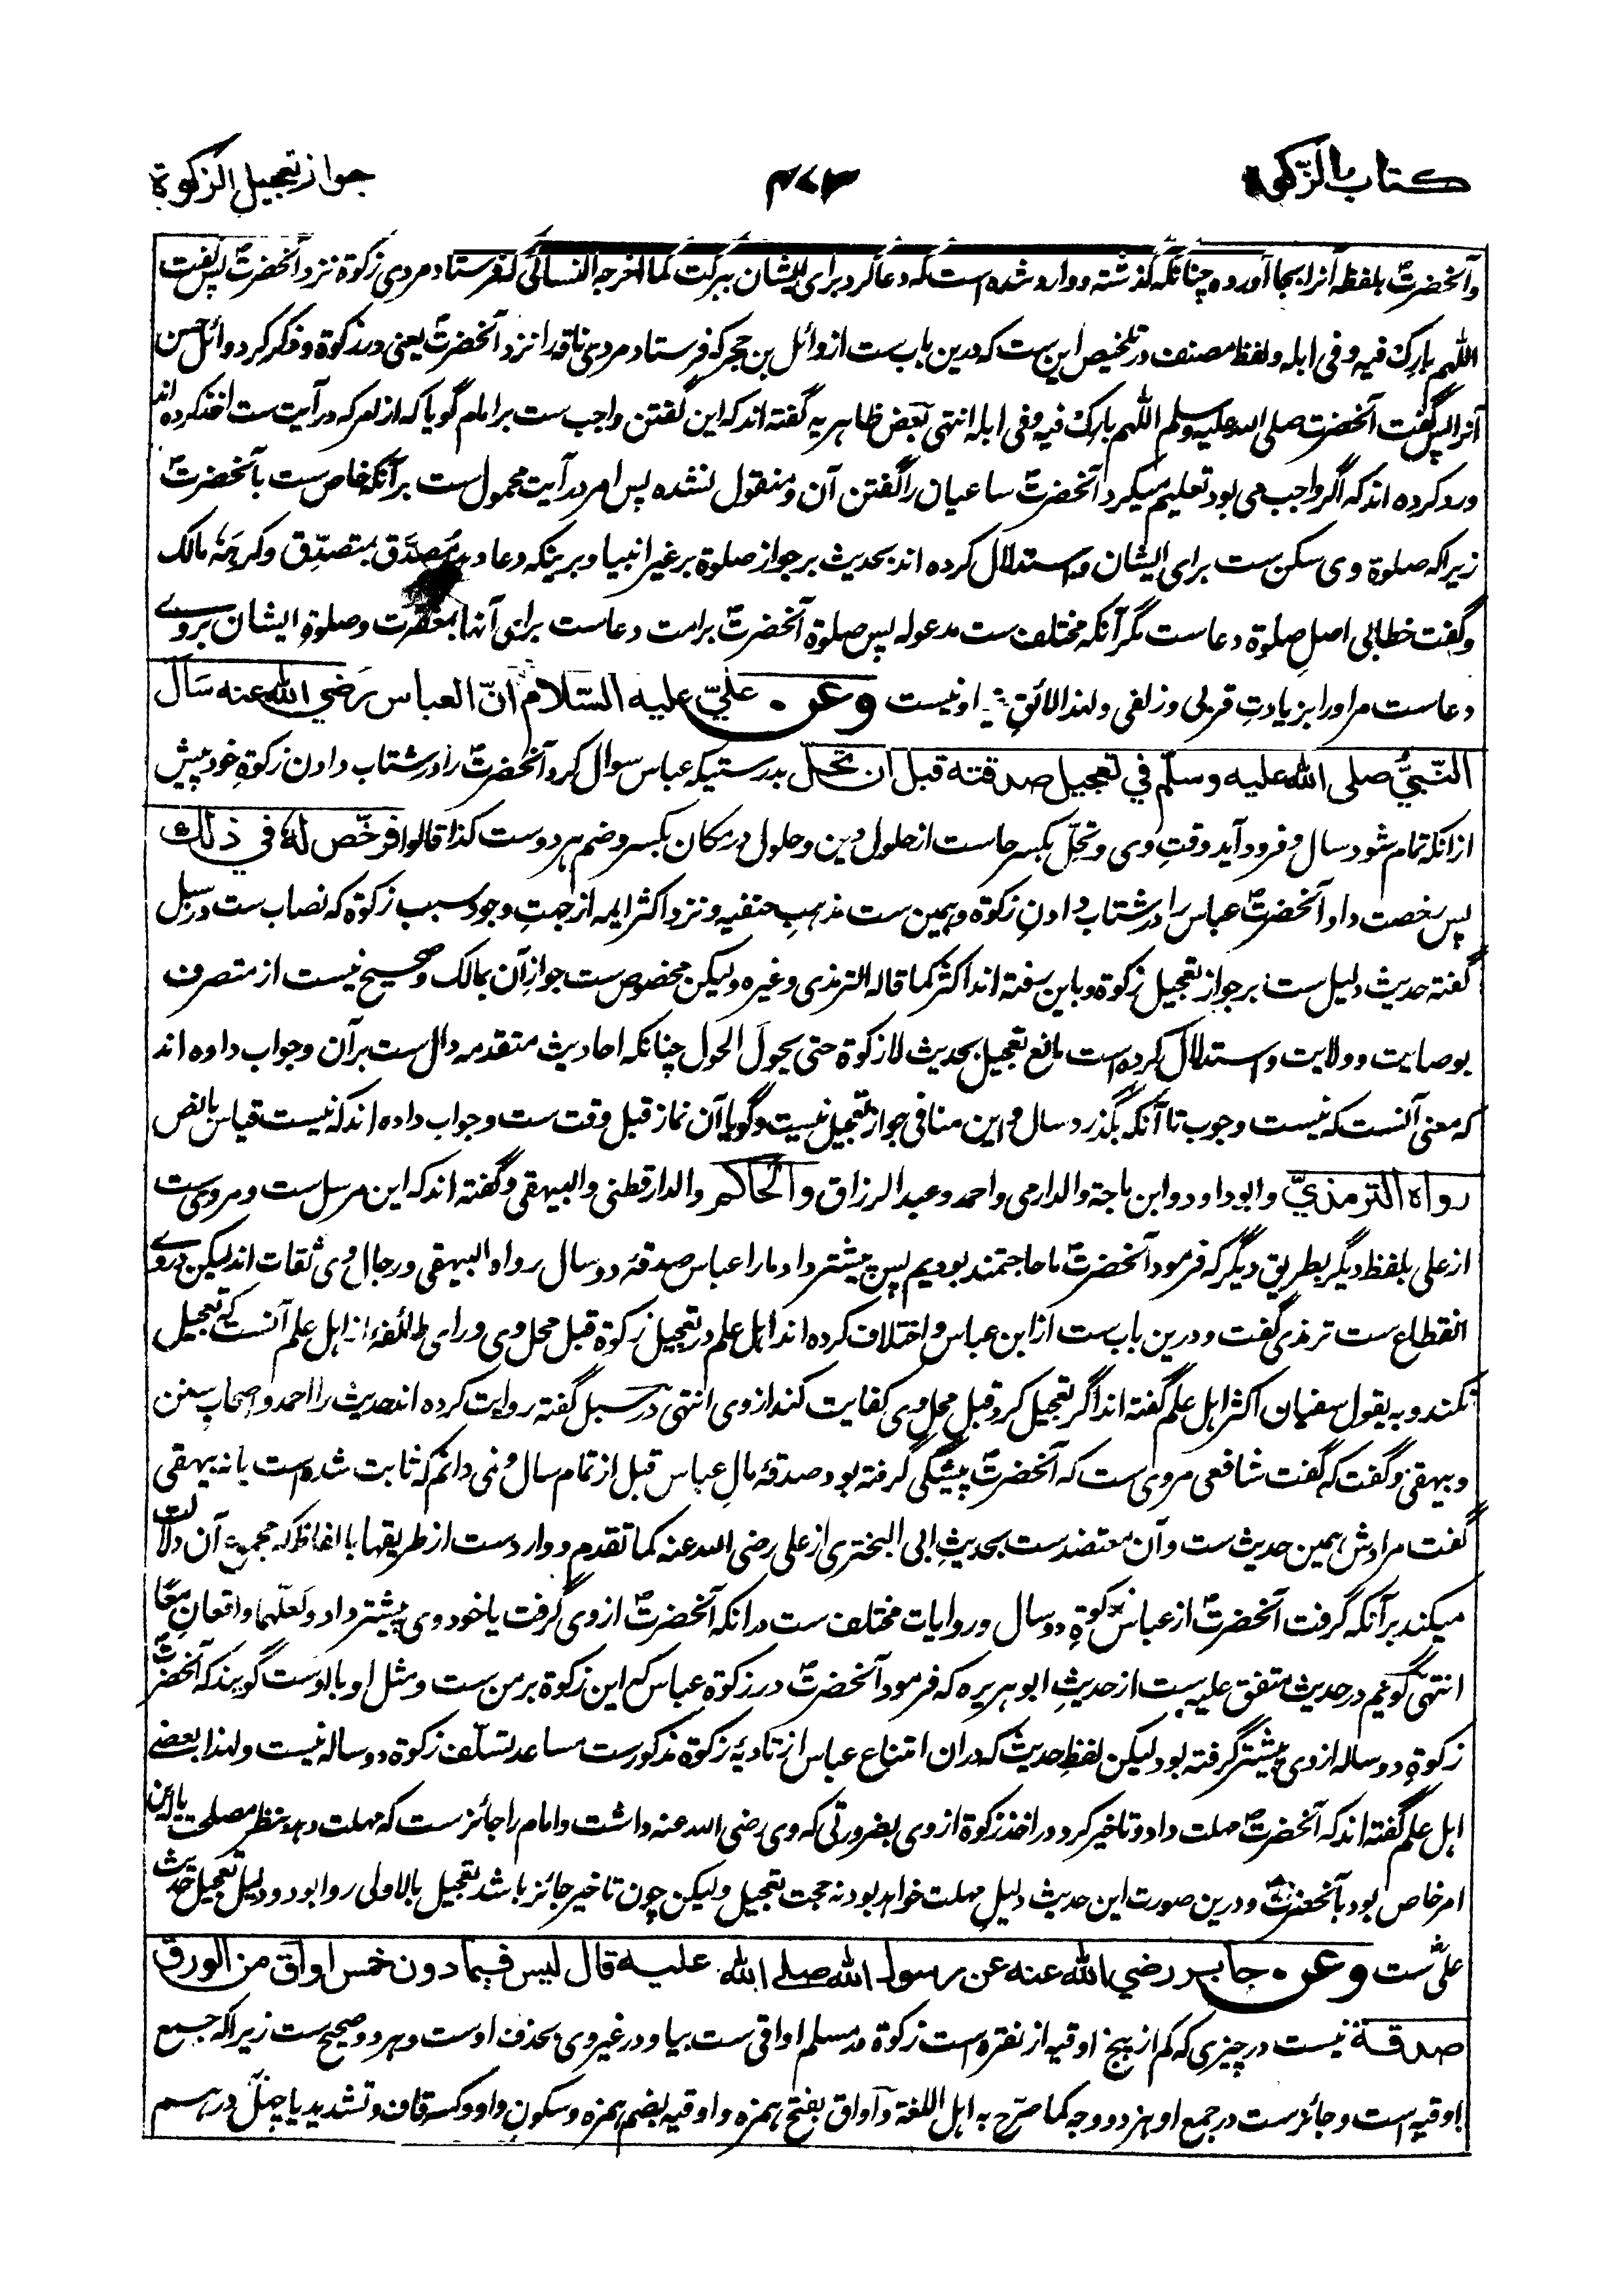 كتاب الزكوة
۴۷۳
جواز تعجيل الزكوة
وآنحضرتؐ بلفظه آنرا بجا آورده چنانکه گذشته ووارد شده است که دعا کرد برای ایشان ببرکت کما اخرجه النسائی که فرستاد مردی زکوة نزد آنحضرتؐ پس گفت
اللهم بارك فيه وفی ابله ولفظ مصنف در تلخیص این ست که درین باب ست از وائل بن حجر که فرستاد مردی ناقه را نزد آنحضرتؐ یعنی در زکوة وذکر کرد وائل حسن
آنرا پس گفت آنحضرت صلی الله علیه وسلم اللهم بارك فيه وفی ابله انتهی بعض ظاهریه گفته اند که این گفتن واجب ست بر امام گویا که از امر که در آیت ست اخذ کرده اند
ورد کرده اند که اگر واجب می بود تعلیم میکرد آنحضرتؐ ساعیان را گفتن آن ومنقول نشده پس امر در آیت محمول ست بر آنکه خاص ست بآنحضرتؐ
زیراکه صلوة وی سکن ست برای ایشان واستدلال کرده اند بحدیث بر جواز صلوة بر غیر انبیا وبرینکه دعا دهد مصدّق بمتصدّق وکرهه مالک
وگفت خطابی اصل صلوة دعاست مگر آنکه مختلف ست مدعوله پس صلوة آنحضرتؐ بر امت دعاست برای آنها بمغفرت وصلوةِ ایشان بروے
دعاست مر او را بزیادتِ قربی وزلفی ولهذا لائقِ بغیر او نیست وعن عليّ عليه السّلام انّ العباس رَضي الله عنه سَال
النّبيّ صلى الله عليه وسلّم في تعجيل صدقته قبل ان تحلّ بدرستیکه عباس سوال کرد آنحضرتؐ را در شتاب دادن زکوةِ خود پیش
ازانکه تمام شود سال وفرود آید وقتِ وی وتحِلّ بکسر حاست از حلول دین وحلول در مکان بکسر وضم هر دوست کذا قالوا فرخّص له في ذلك
پس رخصت داد آنحضرتؐ عباس را در شتاب دادنِ زکوة وهمین ست مذهبِ حنفیه ونزد اکثر ایمه از جهتِ وجود سبب زکوة که نصاب ست در سبل
گفته حدیث دلیل ست بر جواز تعجیل زکوة وباین رفته اند اکثر کما قاله الترمذی وغیره ولیکن مخصوص ست جواز آن بمالک وصحیح نیست از متصرف
بوصایت وولایت واستدلال کرده است مانع تعجیل بحدیث لا زکوة حتی یحولَ الحول چنانکه احادیث متقدمه دال ست بر آن وجواب داده اند
که معنی آنست که نیست وجوب تا آنکه بگذرد سال واین منافی جواز تعجیل نیست وگویا آن نماز قبل وقت ست وجواب داده اند که نیست قیاس بانص
رواه الترمذيّ وابوداود وابن ماجة والدارمی واحمد وعبد الرزاق والحاكم والدارقطنی والبیهقی وگفته اند که این مرسل ست ومروی ست
از علی بلفظ دیگر بطریق دیگر که فرمود آنحضرتؐ ما حاجتمند بودیم پس پیشتر داد ما را عباس صدقهٔ دو سال رواه البیهقی ورجال وی ثقات اند لیکن در وے
انقطاع ست ترمذی گفت ودرین باب ست از ابن عباس واختلاف کرده اند اهل علم در تعجیل زکوة قبل محل وی ورای طائفهٔ از اهل علم آنست که تعجیل
نکند وبه یقول سفیان اکثر اهل علم گفته اند اگر تعجیل کرد قبلِ محلِ وی کفایت کند از وی انتهی در سبل گفته روایت کرده اند حدیث را احمد واصحاب سنن
وبیهقی وگفت که گفت شافعی مروی ست که آنحضرتؐ پیشگی گرفته بود صدقهٔ مالِ عباس قبل از تمام سال ونمی دانم که ثابت شده است یا نه بیهقی
گفت مرادش همین حدیث ست وآن معتضد ست بحدیثِ ابی البختری از علی رضی الله عنه کما تقدم ووارد ست از طریقها بالفاظ که مجموع آن دلالت
میکند بر آنکه گرفت آنحضرتؐ از عباس زکوةِ دو سال وروایات مختلف ست در انکه آنحضرتؐ از وی گرفت یا خود وی پیشتر داد ولَعلّهما واقعانِ معًا
انتهی گویم در حدیث متفق علیه ست از حدیثِ ابو هریره که فرمود آنحضرتؐ در زکوة عباس که این زکوة بر من ست ومثل او با اوست گویند که آنحضرتؐ
زکوةِ دو ساله از وی پیشتر گرفته بود لیکن لفظِ حدیث که دران امتناعِ عباس از تادیهٔ زکوة مذکورست مساعد تسلّف زکوة دو ساله نیست ولهذا بعضے
اهل علم گفته اند که آنحضرتؐ مهلت داد وتاخیر کرد در اخذ زکوة از وی بضرورتی که وی رضی الله عنه داشت وامام را جائز ست که مهلت دهد بنظر مصلحت یا این
امر خاص بود بآنحضرتؐ ودرین صورت این حدیث دلیل مهلت خواهد بود نه حجت تعجیل ولیکن چون تاخیر جائز باشد تعجیل بالاولی روا بود ودلیل تعجیل حدیث
علیؓ ست وعن جابر رضي الله عنه عن رسول الله صلى الله عليه قال ليس فيما دون خمس اواق من الورق
صدقة نیست در چیزی که کم از پنج اوقیه از نقره است زکوة در مسلم اواقی ست بیا ودر غیر وی بحذف اوست وهر دو صحیح ست زیراکه جمع
اوقیه است وجائز ست در جمع او هر دو وجه کما صرّح به اهل اللغة وآواق بفتح همزه واوقیه بضم همزه وسکون واو وکسر قاف وتشدید یا چهل درهم